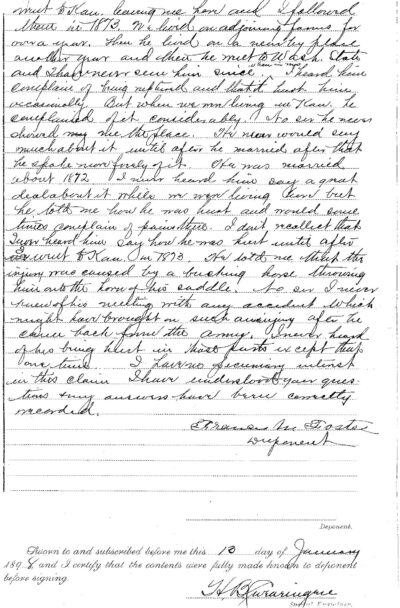 went to Kan. leaving me here and I followed
them in 1873. We lived on adjoining farms for
over a year. Then he lived on a nearby place
another year and then he went to Wash. State
and I have never seen him since. I heard him
complain of being ruptured and that it hurt him
occasionally. But when we were living in Kan. he
complained of it considerably. No sir he never
showed me the place. He never would say
much about it until after he married after that
he spoke more freely of it. He was married
about 1872 I never heard him say a great
deal about it while we were living here but
he told me how he was hurt and would some
times complain of pains there. I dont recollect that
I ever heard him say how he was hurt until after
we went to Kan. in 1873. He told me that the
injury was caused by a bucking horse throwing
him onto the horn of his saddle. No sir I never
knew of his meeting with any accident which
might have brought on such an injury after he
came back from the army. I never heard
of his being hurt in those parts except that
one time. I have no pecuniary interest
in this claim I have understood your ques-
tions & my answers have been correctly
recorded.
Francis M. Foster
Deponent
Deponent.
Sworn to and subscribed before me this 13 day of January
1898 and I certify that the contents were fully made known to deponent
before signing.
H. B.
Special Examiner.